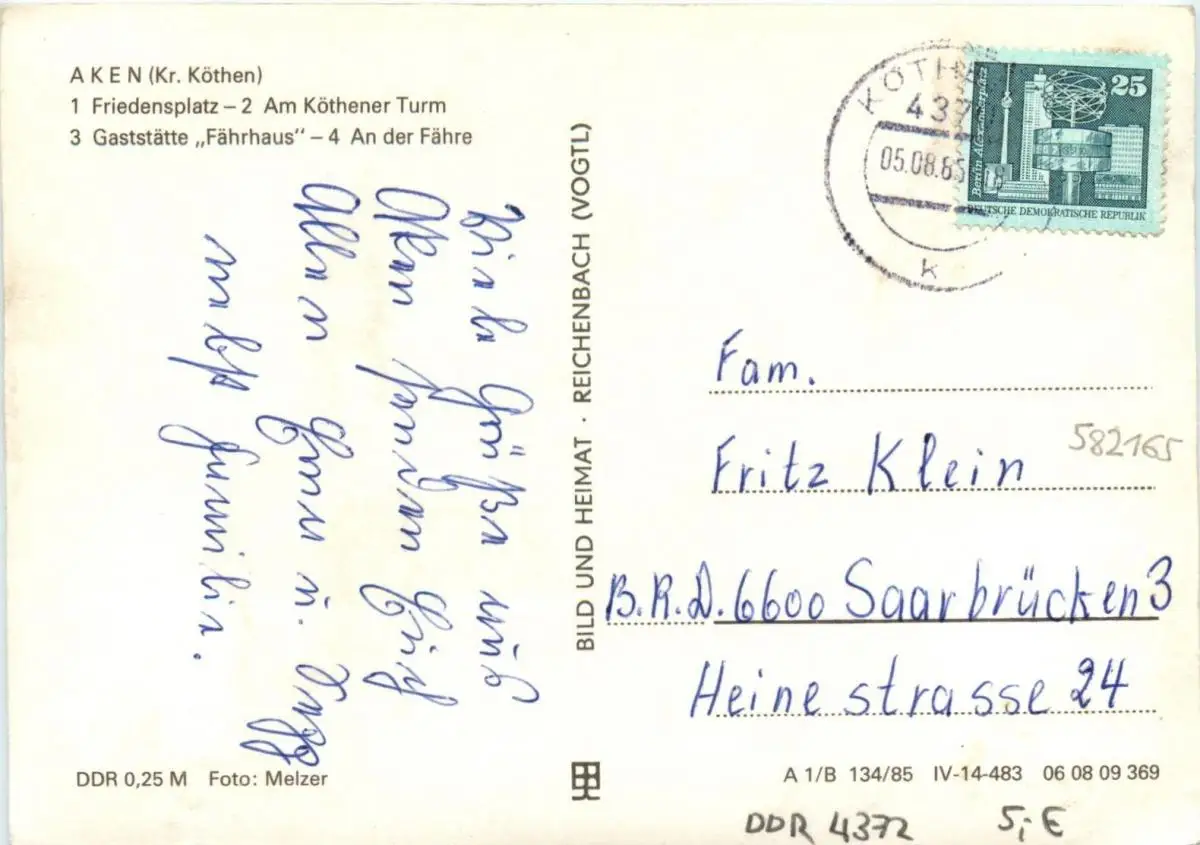 AKEN (Kr. Köthen)
1 Friedensplatz – 2 Am Köthener Turm
3 Gaststätte „Fährhaus" – 4 An der Fähre
Viele Grüße aus
Aken senden Euch
Allen Hans u.
nebst Familie.
DDR 0,25 M Foto: Melzer
BILD UND HEIMAT · REICHENBACH (VOGTL)
KÖTHEN
437
05.08.85
k
25
Berlin Alexanderplatz
DEUTSCHE DEMOKRATISCHE REPUBLIK
Fam.
Fritz Klein
582165
B.R.D. 6600 Saarbrücken 3
Heinestrasse 24
A 1/B 134/85 IV-14-483 06 08 09 369
DDR 4372 5,- €